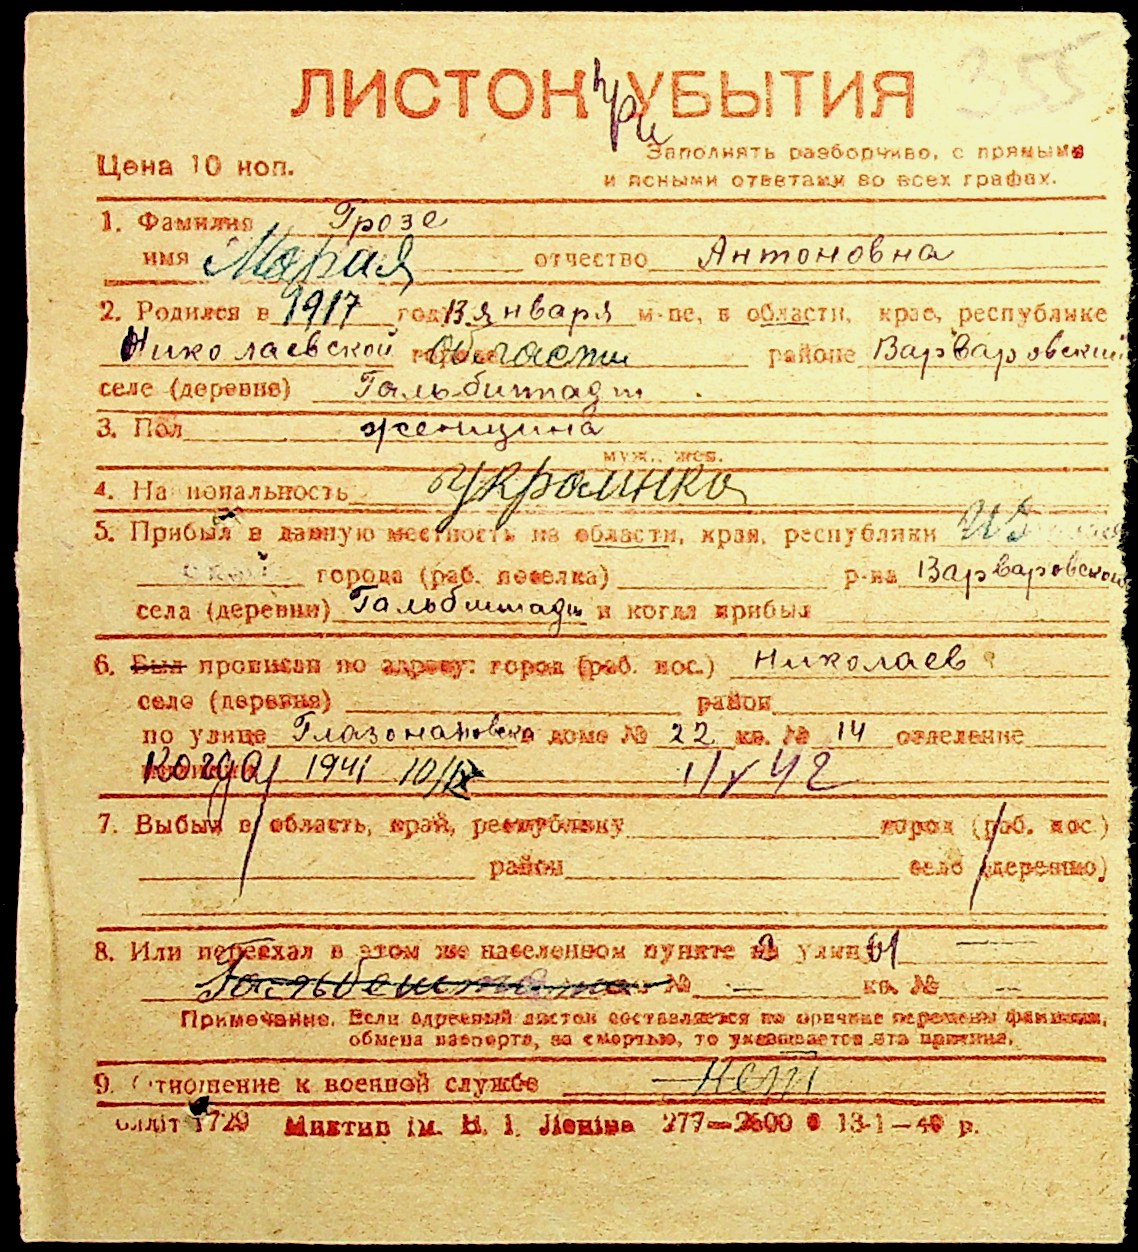 355
ЛИСТОК при УБЫТИЯ
Цена 10 коп.
Заполнять разборчиво, с прямыми
и ясными ответами во всех графах.
1. Фамилия Грозе
имя Мария отчество Антоновна
2. Родился в 1917 год 13 января м-це, в области, крае, республике
Николаевской городе области районе Варваровский
селе (деревне) Гальбштадт
3. Пол женщина
муж., жен.
4. Национальность украинка
5. Прибыл в данную местность из области, края, республики
ской города (раб. поселка) р-на Варваровского
села (деревни) Гальбштадт и когда прибыл
6. Был прописан по адресу: город (раб. пос.) Николаев
село (деревня) район
по улице доме № 22 кв. № 14 отделение
милиции Когда 1941 10/IX 1/V 42
7. Выбыл в область, край, республику город (раб. пос.)
район село (деревню)
8. Или переехал в этом же населенном пункте на улицы —
№ — кв. № —
Примечание. Если адресный листок составляется по причине перемены фамилии,
обмена паспорта, за смертью, то указывается эта причина.
9. Отношение к военной службе нет
Облліт 1729 Миктип ім. В. І. Леніна 277—2600 13-1—40 р.